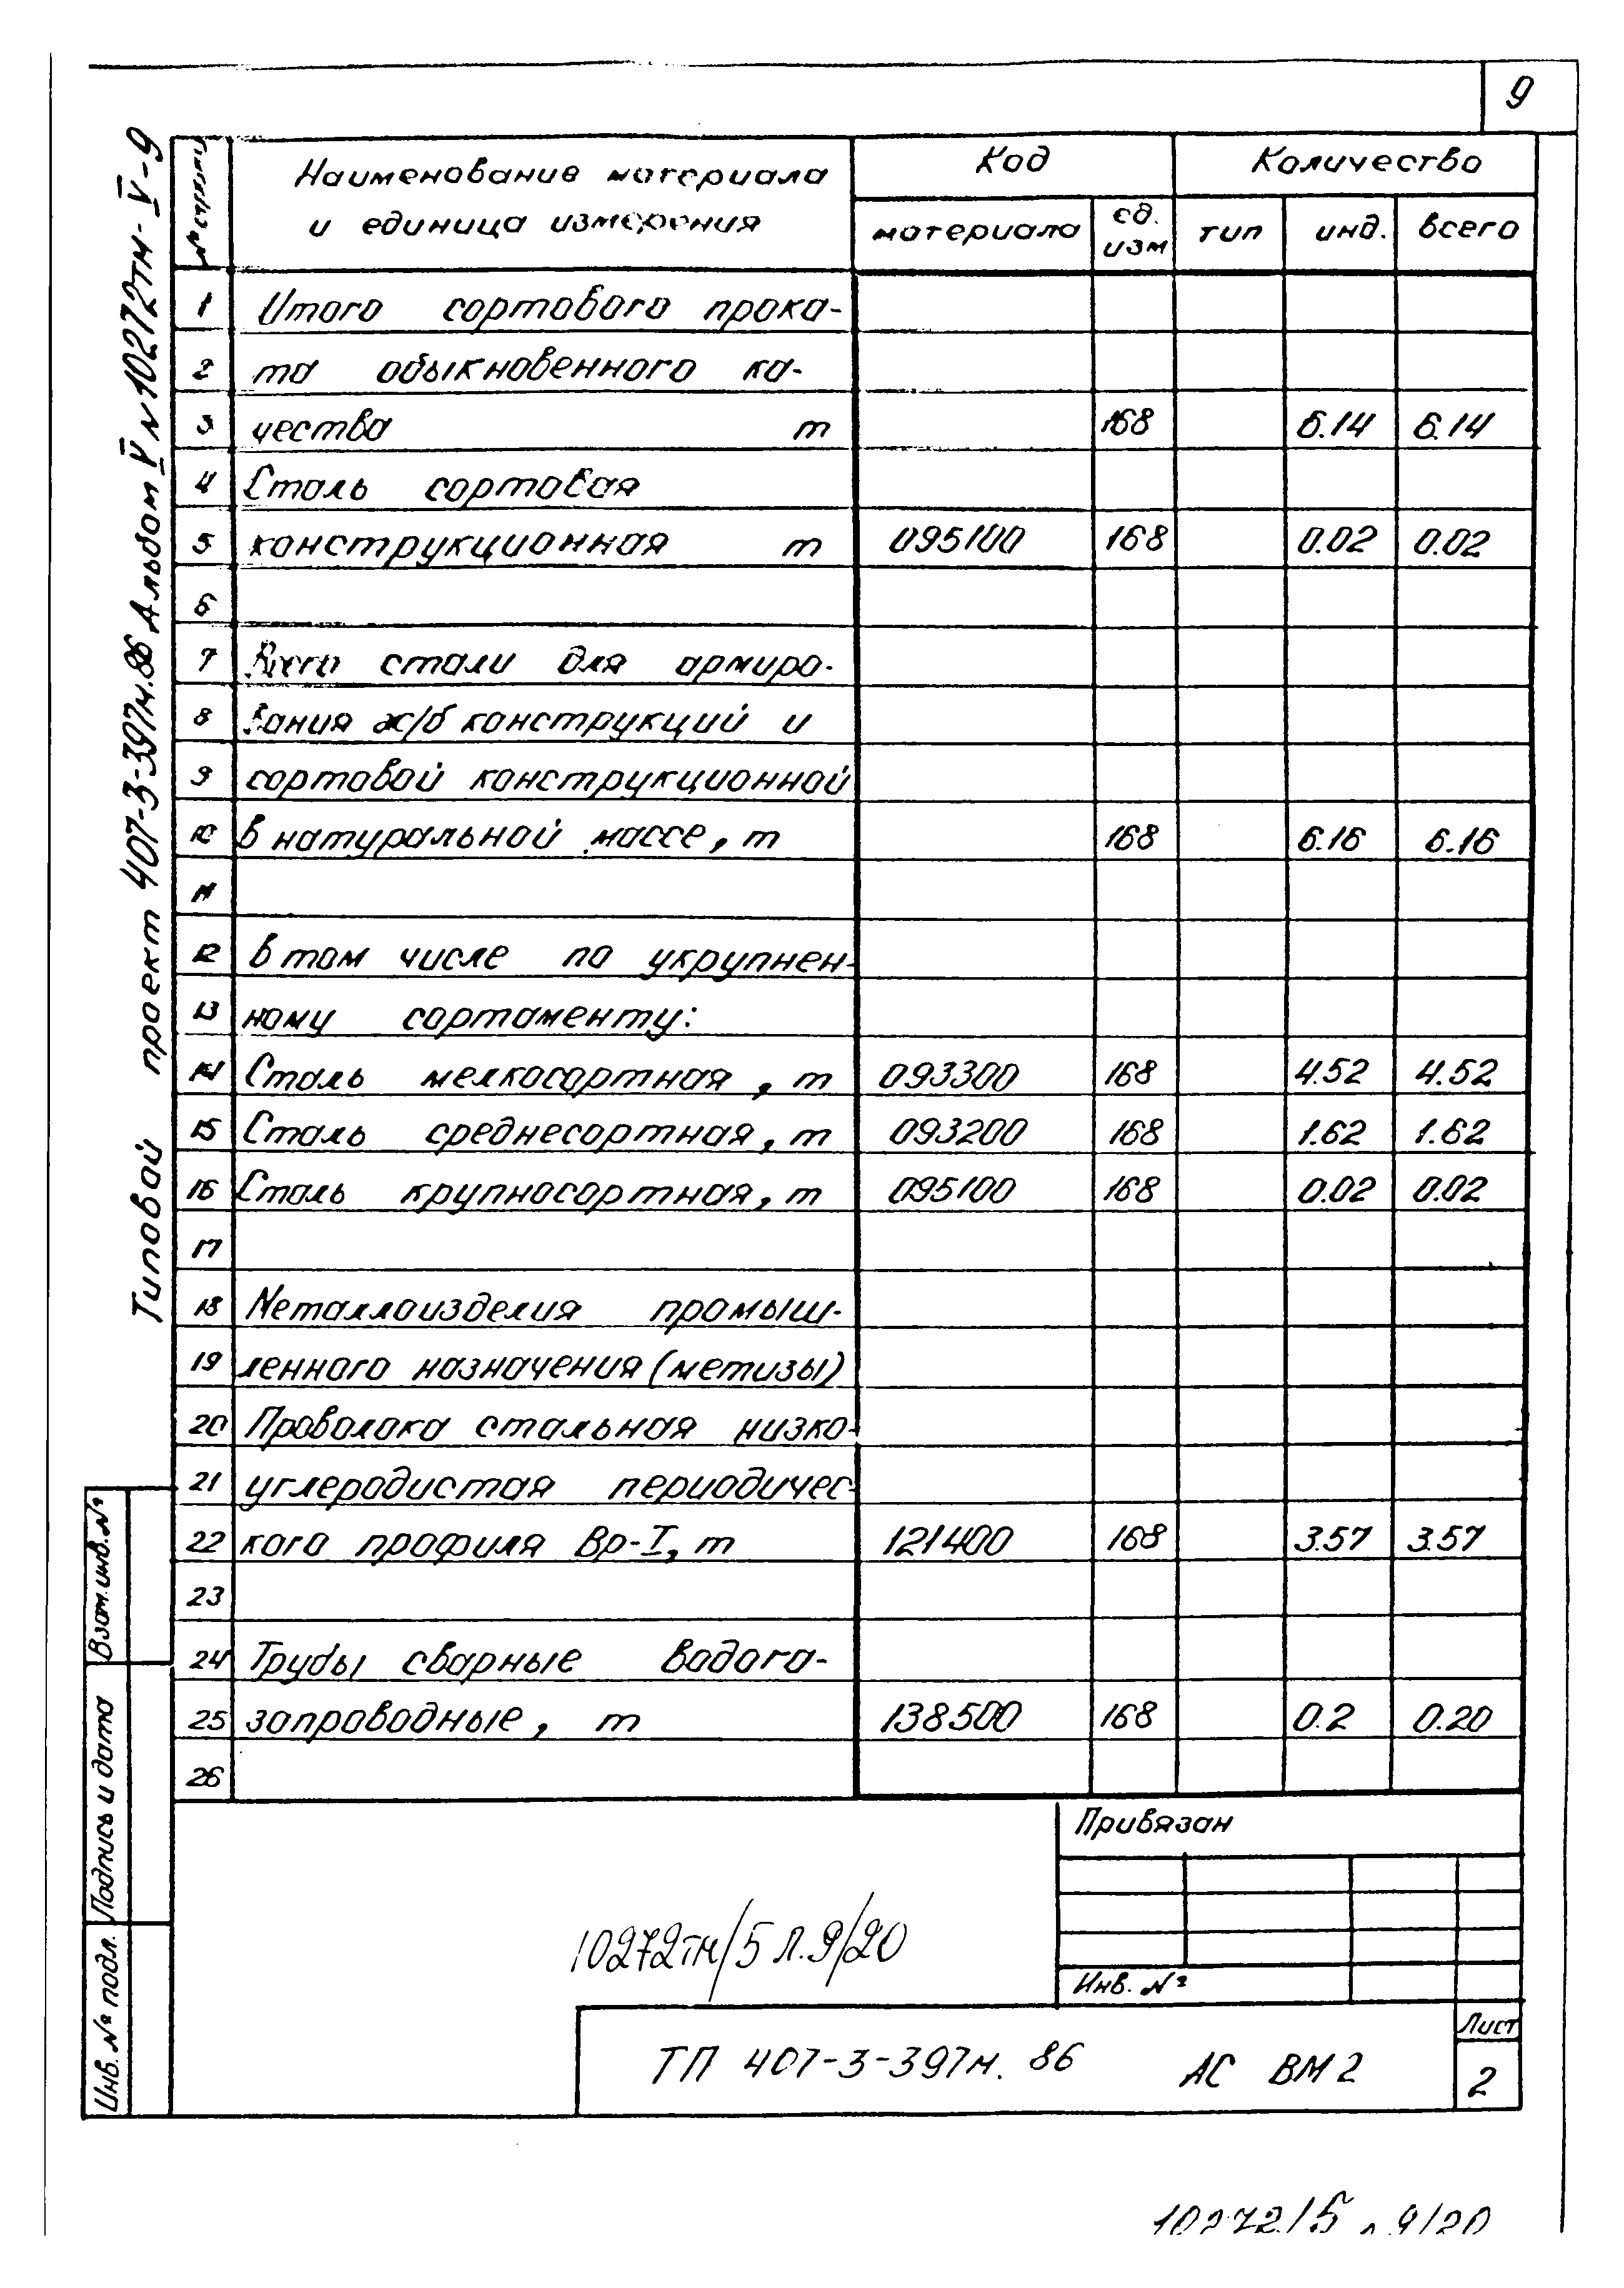 9
Типовой проект 407-3-397м.86 Альбом V N10272тм-V-9
№ строки Наименование материала и единица измерения Код Количество
материала ед. изм тип инд. всего
1 Итого сортового прока-
2 та обыкновенного ка-
3 чества т 168 6.14 6.14
4 Сталь сортовая
5 конструкционная т 095100 168 0.02 0.02
6
7 Всего стали для армиро-
8 вания ж/б конструкций и
9 сортовой конструкционной
10 в натуральной массе, т 168 6.16 6.16
11
12 в том числе по укрупнен-
13 ному сортаменту:
14 Сталь мелкосортная, т 093300 168 4.52 4.52
15 Сталь среднесортная, т 093200 168 1.62 1.62
16 Сталь крупносортная, т 095100 168 0.02 0.02
17
18 Металлоизделия промыш-
19 ленного назначения (метизы)
20 Проволока стальная низко-
21 углеродистая периодичес-
22 кого профиля Вр-I, т 121400 168 3.57 3.57
23
24 Трубы сварные водога-
25 запроводные, т 138500 168 0.2 0.20
26
Взам.инв.№
Подпись и дата
Инв. № подл.
Привязан
Инв. №
10272тм/5 л.9/20
ТП 407-3-397м. 86 АС ВМ2
Лист
2
10272/5 л.9/20